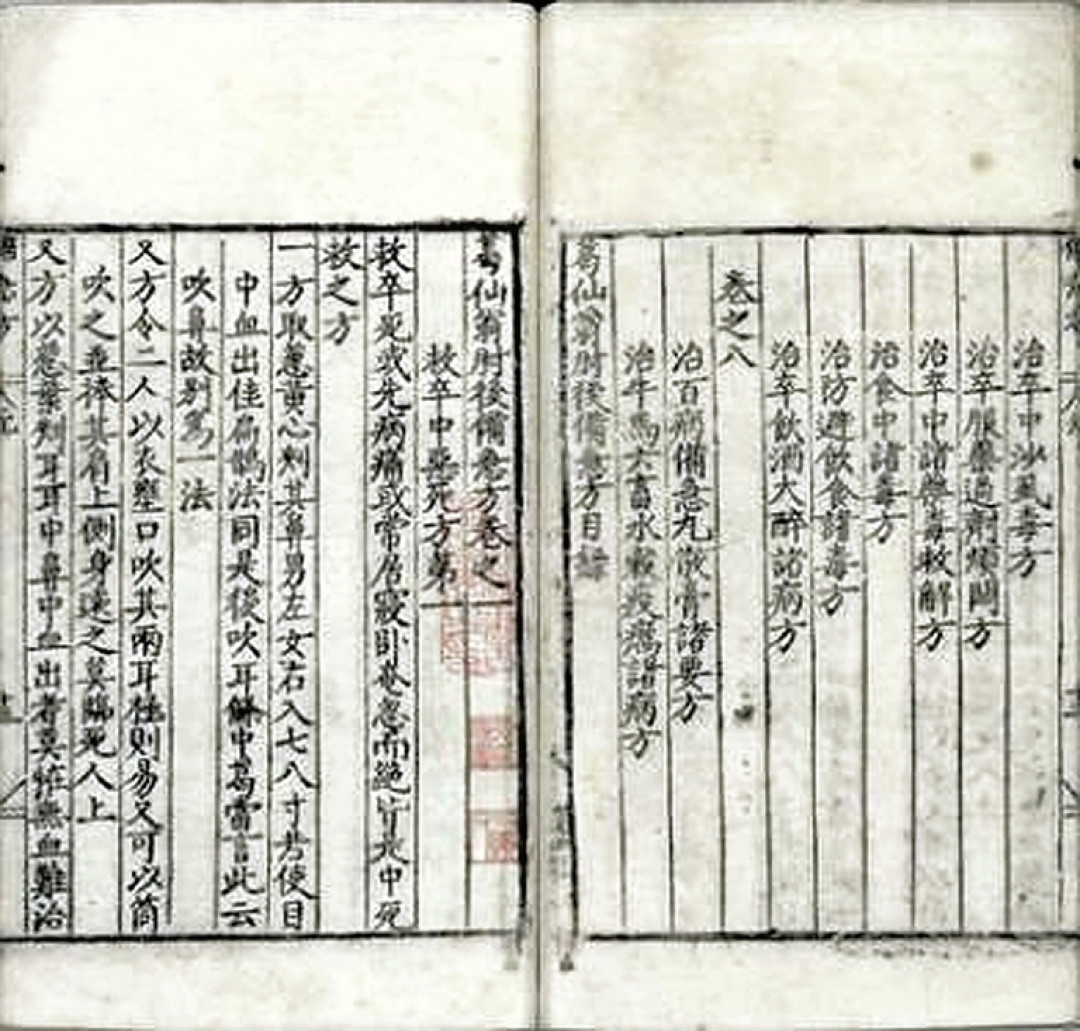 治卒中沙虱毒方
治卒服藥過劑煩悶方
治卒中諸藥毒救解方
治食中諸毒方
治防避飲食諸毒方
治卒飲酒大醉諸病方
卷之八
治百病備急丸散膏諸要方
治牛馬六畜水穀疫癘諸病方
葛仙翁肘後備急方目錄
葛仙翁肘後備急方卷之一
救卒中惡死方第一
救卒死或先病痛或常居寢卧奄忽而絕皆是中死
救之方
一方取葱黄心刺其鼻男左女右入七八寸若使目
中血出佳扁鵲法同是後吹耳條中葛當言此云
吹鼻故别爲一法
又方令二人以衣壅口吹其兩耳極則易又可以筒
吹之並捧其肩上側身遠之莫臨死人上
又方以葱葉刺耳耳中鼻中血出者莫怪無血難治